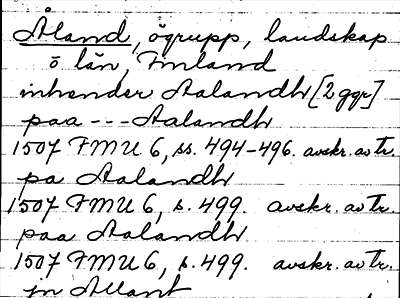 Åland, ögrupp, landskap
o län, Finland
inhender Aalandh [2 ggr]
paa --- Aalandh
1507 FMU 6, ss. 494-496. avskr. av tr.
pa Aalandh
1507 FMU 6, s. 499. avskr. av tr.
paa Aalandh
1507 FMU 6, s. 499. avskr. av tr.
jn Allant